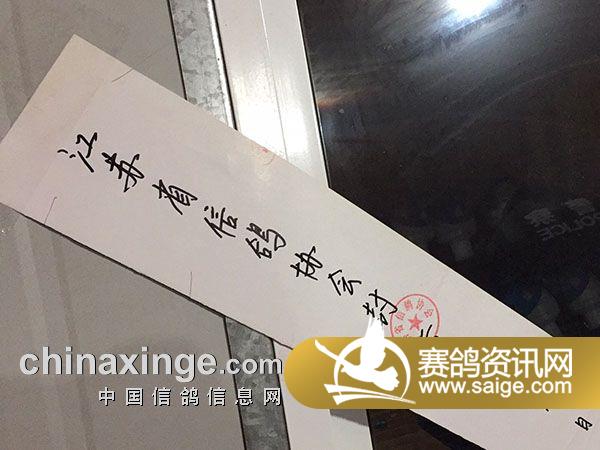 江苏省信鸽协会封
POLICE
chinaxinge.com
中国信鸽信息网
赛鸽资讯网
www.saige.com
日